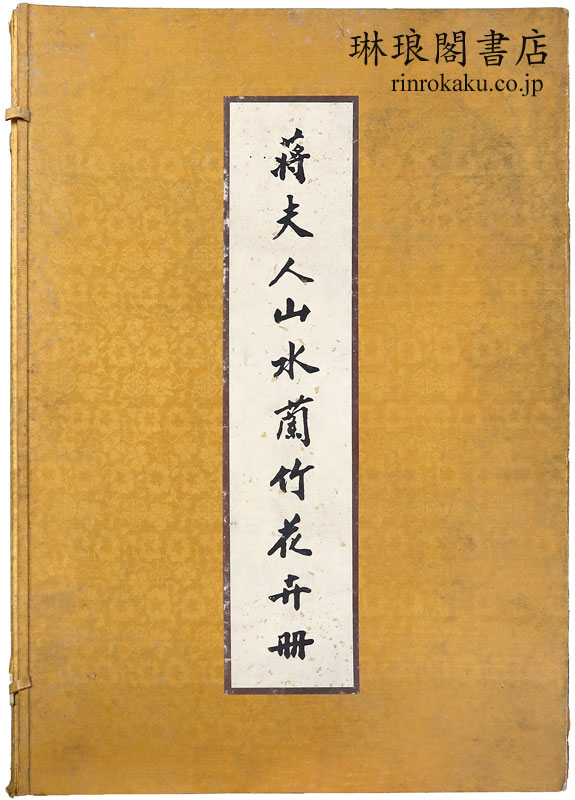 琳琅閣書店
rinrokaku.co.jp
蔣夫人山水蘭竹花卉冊